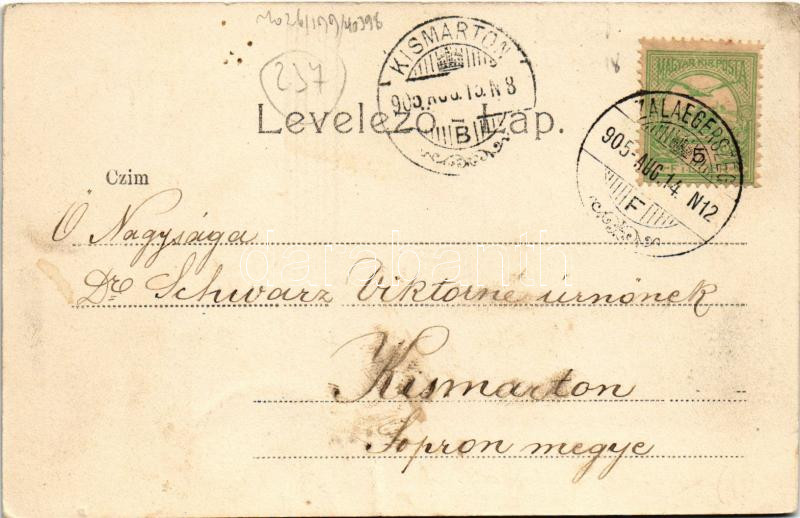 237
KISMARTON
905. AUG. 15. N 8
B
MAGYAR KIR. POSTA
5
ZALAEGERSZEG
905-AUG. 14. N12
F
Levelező-Lap.
Czim
Ő Nagysága
Dr. Schwarz Viktorné urnőnek
Kismarton
Sopron megye
darabanth